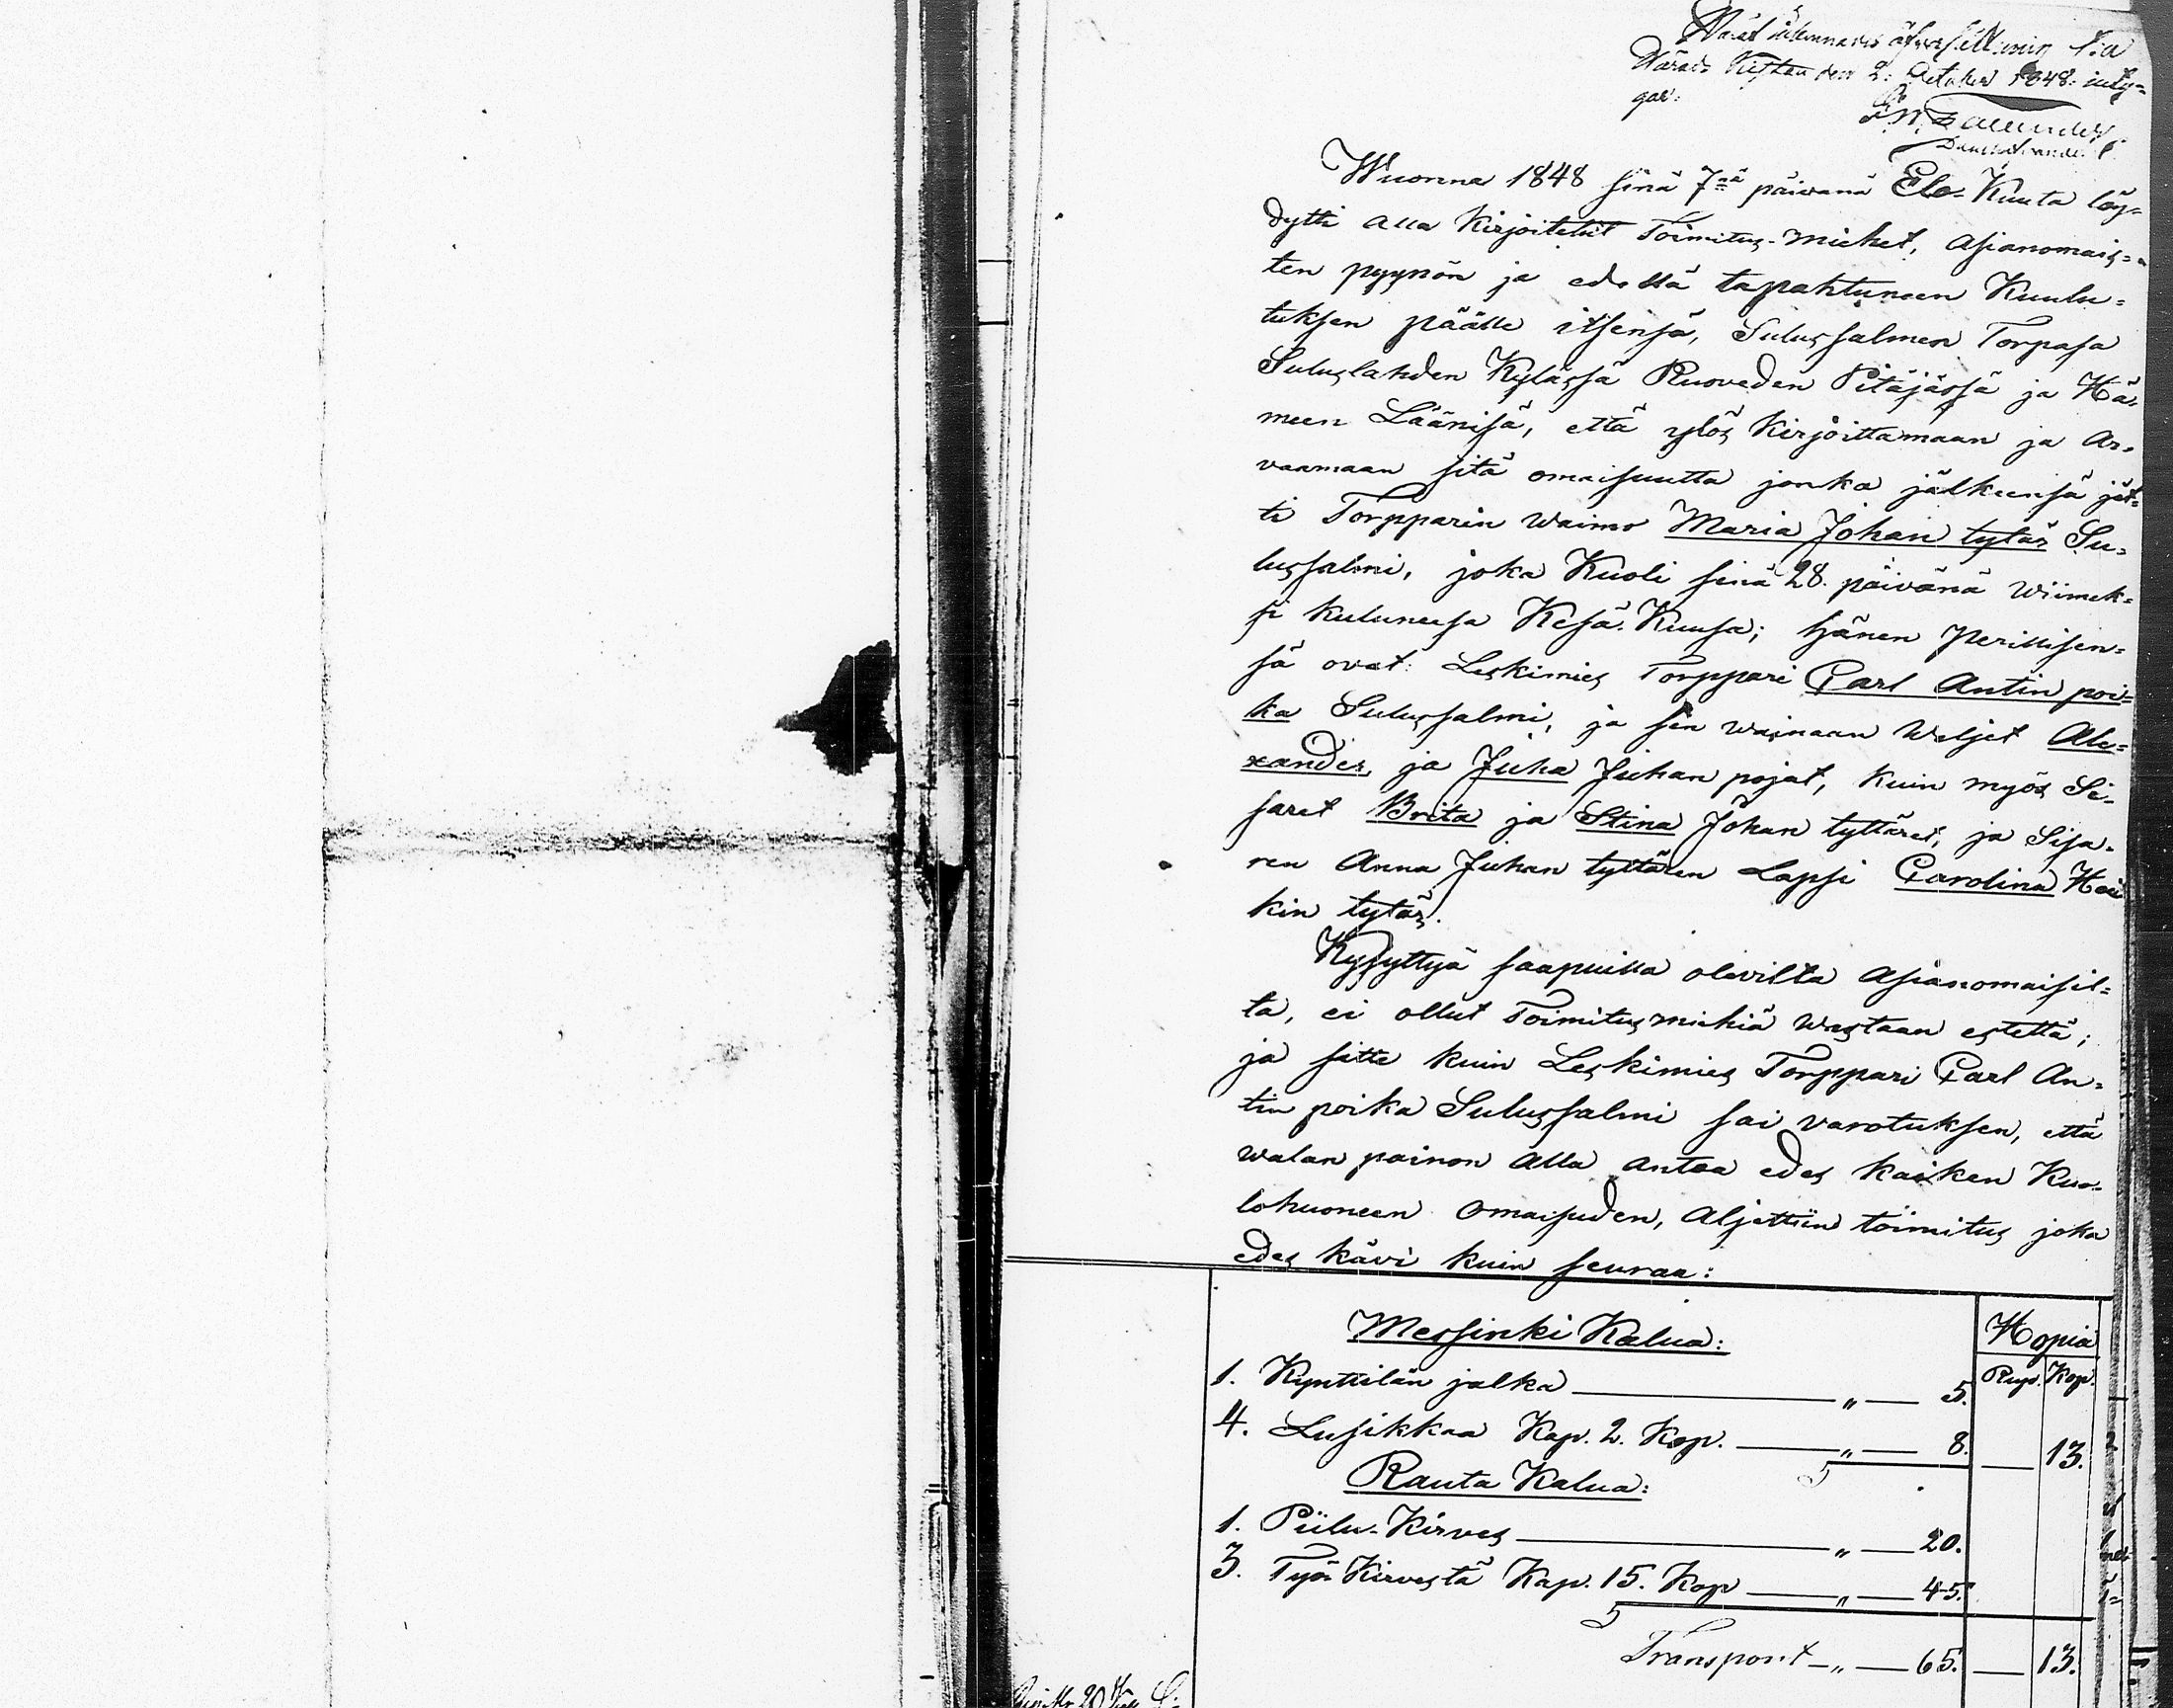 October 1848.
Wuonna 1848 sinä 7nä päivänä Elo-Kuuta löy=
dytti alla Kirjoitetut Toimitus-miehet, asianomais=
ten pyynön ja edellä tapahtuneen Kuulu=
tuksen päälle itsensä, Sulussalmen Torpasa
Suluslahden Kylässä Ruoveden Pitäjässä ja Hä=
meen Läänisä, että ylös Kirjoittamaan ja ar=
vaamaan sitä omaisuutta jonka jälkeensä jät=
ti Torpparin waimo Maria Johan tytär Su=
lussalmi, joka Kuoli sinä 28. päivänä wiimek=
si kuluneesa Kesä-Kuusa; hänen Perillisen=
sä ovat: Leskimies Torppari Carl Antin poi=
ka Sulussalmi, ja sen wainaan Weljet Ale=
xander ja Juha Juhan pojat, kuin myös Si=
saret Brita ja Stina Johan tyttäret, ja Sisa=
ren Anna Juhan tyttären Lapsi Carolina Hei
kin tytär.
Kysyttyä saapuilla olevilta asianomaisil=
ta, ei ollut Toimitusmiehiä wastaan estettä;
ja sitte kuin Leskimies Torppari Carl An=
tin poika Sulussalmi sai varotuksen, että
walan painon alla antaa edes kaiken Kuo=
lohuoneen omaisuden, aljettiin toimitus joka
edes kävi kuin seuraa:
Messinki Kalua: Hopia
1. Kynttilän jalka " 5. Rup. Kop.
4. Lusikkaa Kap. 2. Kop. " 8. 13.
5
Rauta Kalua:
1. Piilu-Kirves " 20.
3. Työ Kirvestä Kap. 15. Kop " 45.
5
Transport " 65. 13.